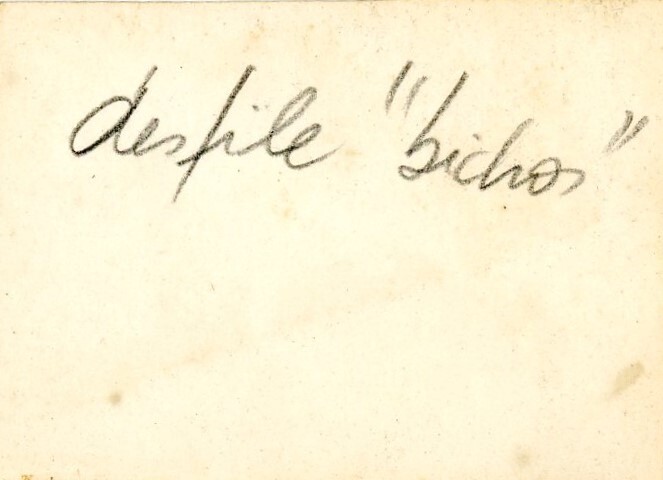 desfile "bichos"